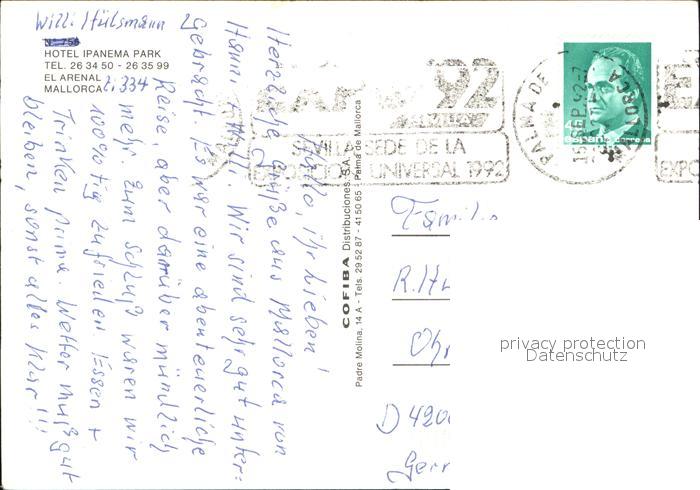 Willi Hülsmann
Nº 756
HOTEL IPANEMA PARK
TEL. 26 34 50 - 26 35 99
EL ARENAL
MALLORCA
Z. 334
Hallo, ihr Lieben!
Herzliche Grüße aus Mallorca von
Hann. + Willi. Wir sind sehr gut unter=
gebracht. Es war eine abenteuerliche
Reise, aber darüber mündlich
mehr. Zum Schluß waren wir
1000%tig zufrieden. Essen +
Trinken prima. Wetter muß gut
bleiben, sonst alles klar!!!
COFIBA Distribuciones, S.A.
Padre Molina, 14 A - Tels. 29 52 87 - 41 50 65 - Palma de Mallorca
92
SEVILLA SEDE DE LA
EXPOSICION UNIVERSAL 1992
PALMA DE MALLORCA
15 SEP. 92
España correos
EXPO
Familie
R. Hü
D 420
privacy protection
Datenschutz